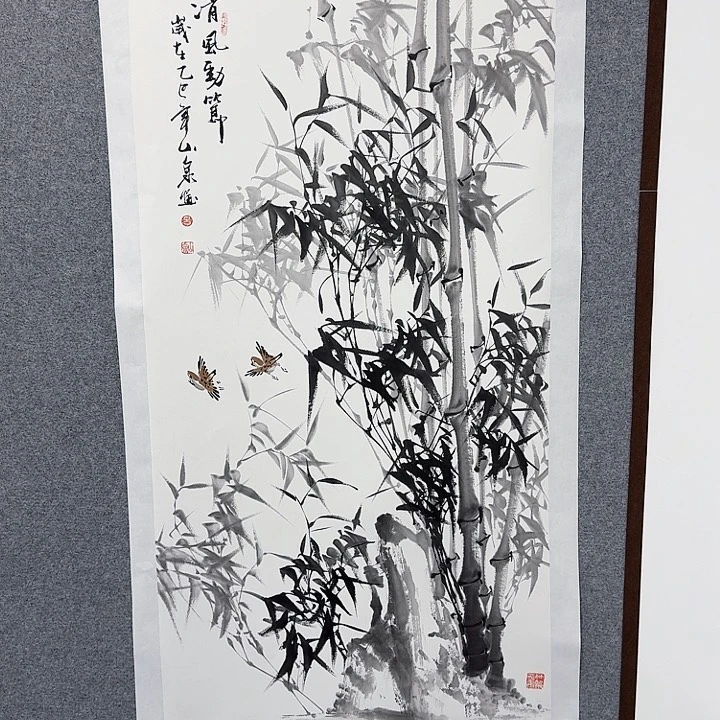 清風勁節
歲在乙巳山泉